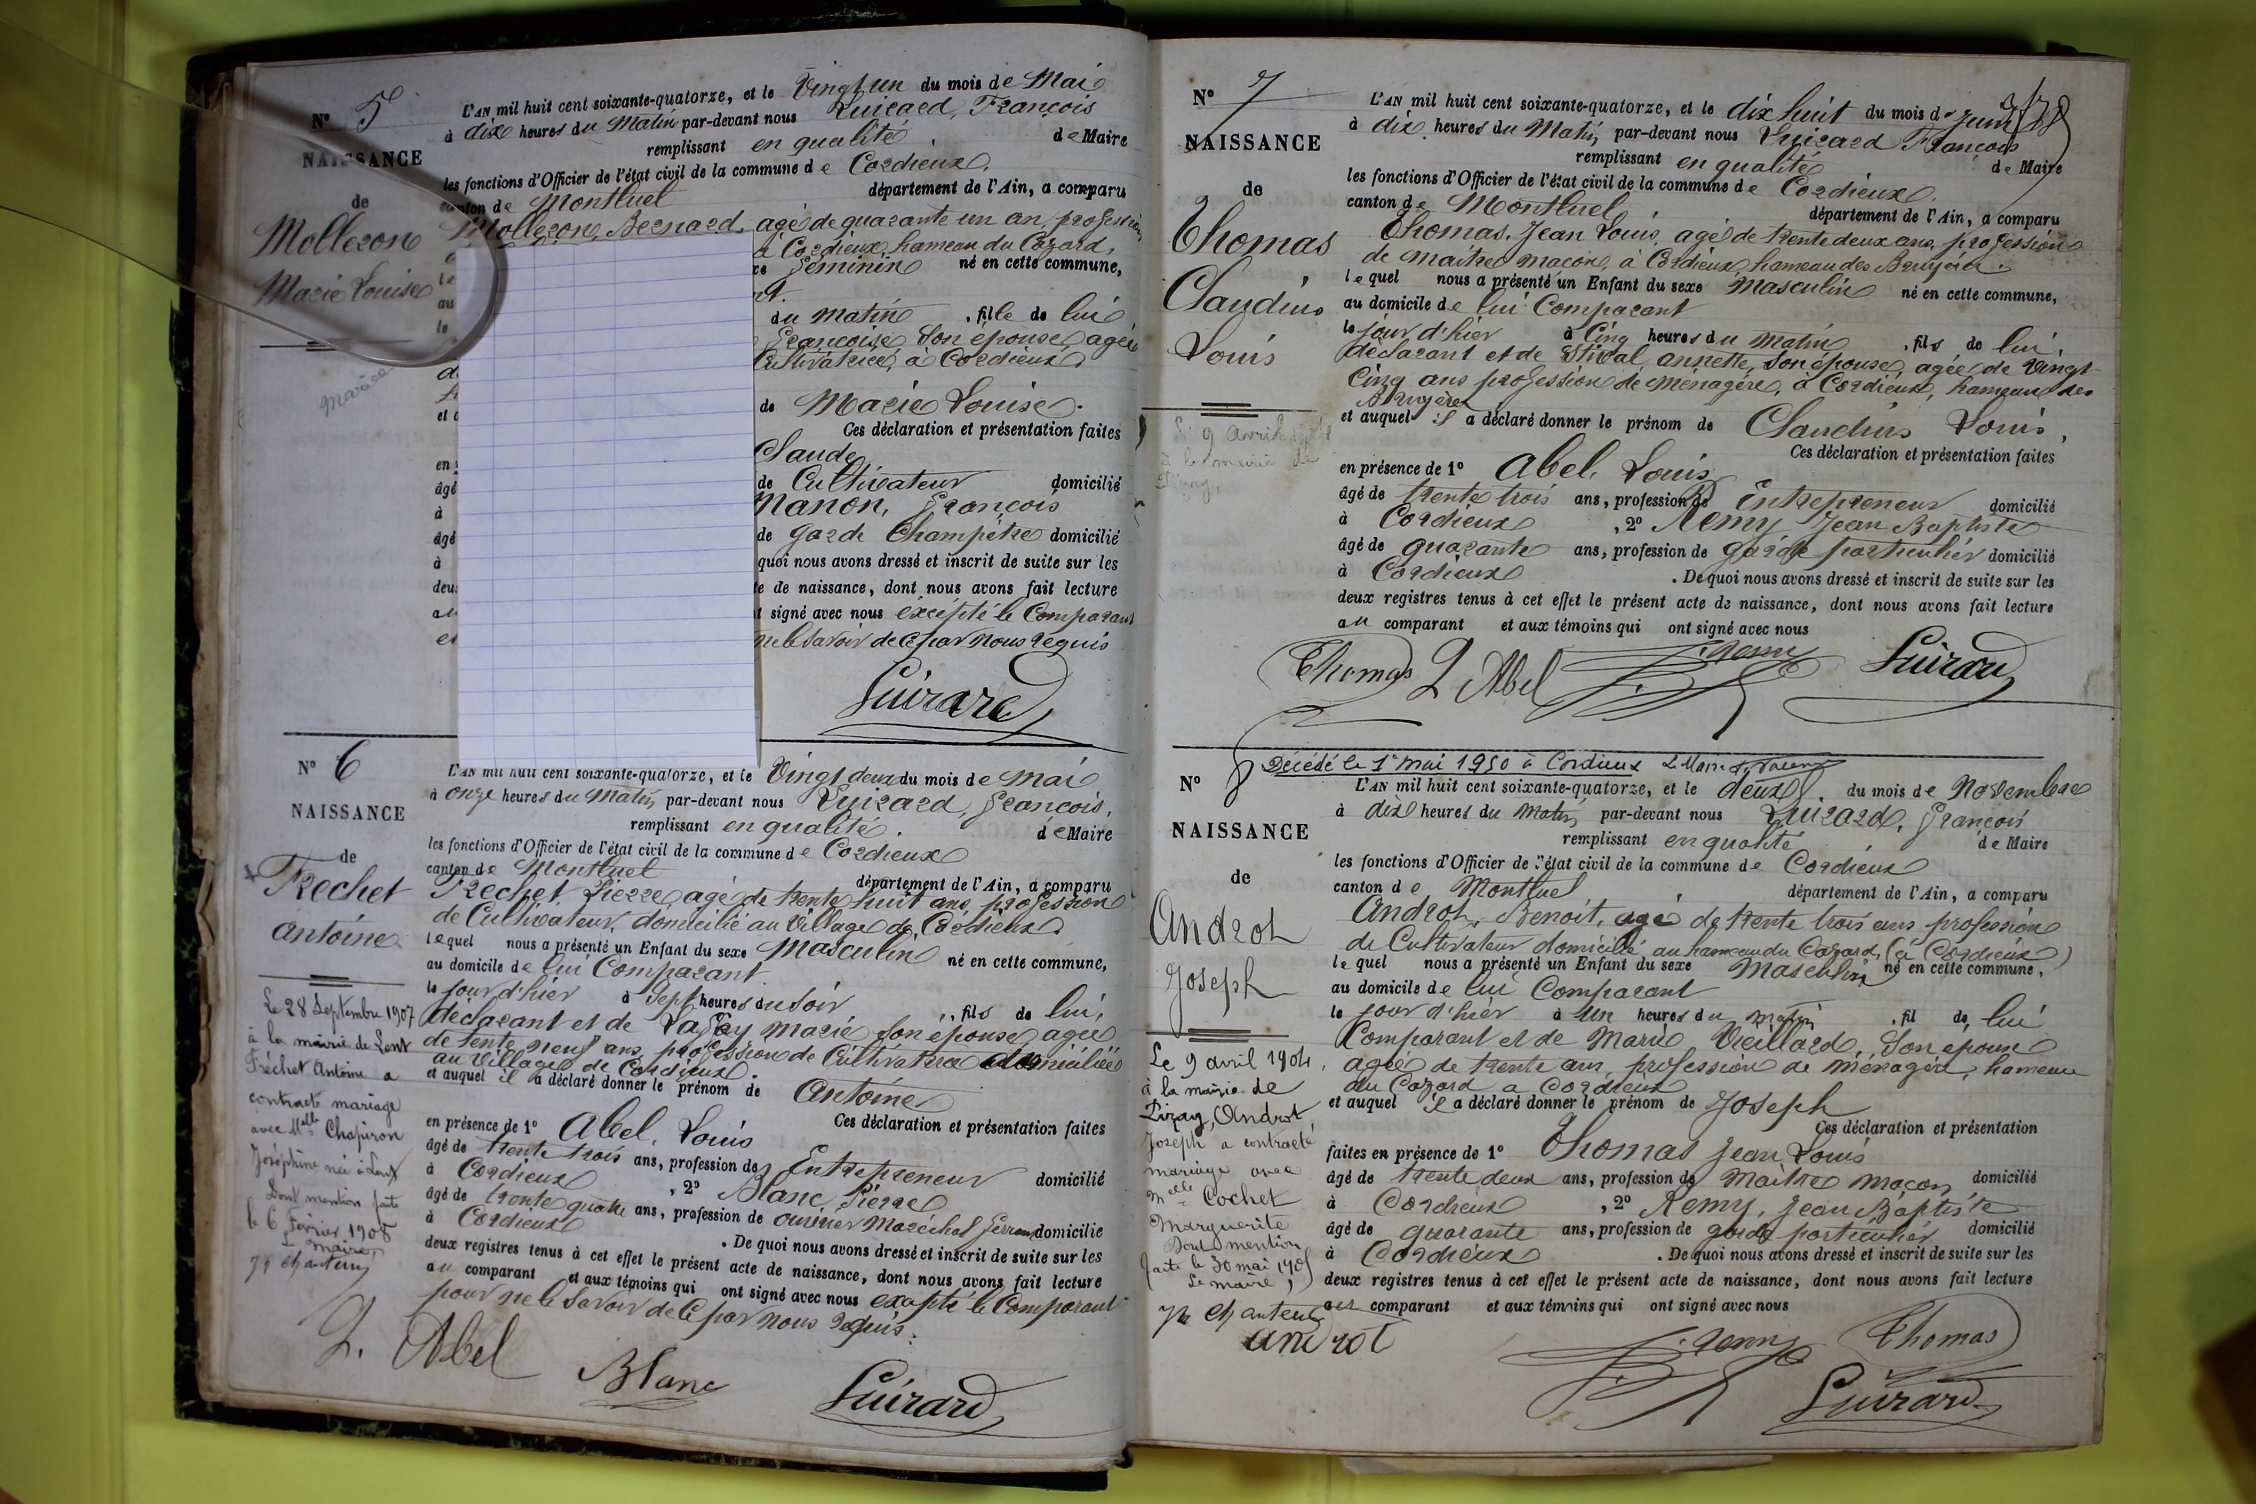 N° 5
NAISSANCE
de
Molleron
Marie Louise
L'AN mil huit cent soixante-quatorze, et le Vingt un du mois de Mai
à dix heures du Matin par-devant nous Luirard, François
remplissant en qualité de Maire
les fonctions d'Officier de l'état civil de la commune de Cordieux.
canton de Montluel département de l'Ain, a comparu
Molleron, Bernard, agé de quarante un an, profession
à Cordieux, hameau du Cozard,
Féminin né en cette commune,
du matin, fille de lui
Françoise son épouse, agée
Cultivatrice, à Cordieux
de Marie Louise.
Ces déclaration et présentation faites
Claude
de Cultivateur domicilié
Manon, François
de garde Champêtre domicilié
quoi nous avons dressé et inscrit de suite sur les
de naissance, dont nous avons fait lecture
signé avec nous excépté le Comparant
ne le savoir de ce par nous requis
Luirard
N° 6
NAISSANCE
de
Frechet
Antoine
Le 28 Septembre 1907
à la mairie de Lent
Fréchet Antoine a
contracté mariage
avec Melle Chapiron
Joséphine née à Lent
Dont mention faite
le 6 Février 1908
Le Maire,
L'AN mil huit cent soixante-quatorze, et le Vingt deux du mois de Mai
à onze heures du Matin, par-devant nous Luirard, François,
remplissant en qualité. de Maire
les fonctions d'Officier de l'état civil de la commune de Cordieux
canton de Montluel département de l'Ain, a comparu
Frechet, Pierre, agé de trente huit ans, profession
de Cultivateur, domicilié au Village de Cordieux
lequel nous a présenté un Enfant du sexe Masculin né en cette commune,
au domicile de lui Comparant
le jour d'hier à Sept heures du soir, fils de lui,
déclarant et de Marie son épouse agée
de trente neuf ans, profession de Cultivatrice domiciliée
au Village de Cordieux.
et auquel il a déclaré donner le prénom de Antoine
Ces déclaration et présentation faites
en présence de 1° Abel, Louis
âgé de trente trois ans, profession de Entrepreneur domicilié
à Cordieux, 2° Blanc, Pierre
âgé de trente quatre ans, profession de ouvrier Maréchal ferrant domicilié
à Cordieux. De quoi nous avons dressé et inscrit de suite sur les
deux registres tenus à cet effet le présent acte de naissance, dont nous avons fait lecture
au comparant et aux témoins qui ont signé avec nous excepté le Comparant
pour ne le savoir de ce par nous requis.
L. Abel Blanc Luirard
N° 7
NAISSANCE
de
Thomas
Claudius
Louis
Le 9 avril
à la mairie de
L'AN mil huit cent soixante-quatorze, et le dix huit du mois de Juin
à dix heures du Matin, par-devant nous Luirard François
remplissant en qualité de Maire
les fonctions d'Officier de l'état civil de la commune de Cordieux.
canton de Montluel département de l'Ain, a comparu
Thomas, Jean Louis, agé de trente deux ans, profession
de maître maçon, à Cordieux, hameau des Bruyères.
lequel nous a présenté un Enfant du sexe Masculin né en cette commune,
au domicile de lui Comparant
le jour d'hier à Cinq heures du matin, fils de lui,
déclarant et de Stival, annette, son épouse, agée de Vingt
Cinq ans profession de ménagère, à Cordieux, hameau des
Bruyères
et auquel il a déclaré donner le prénom de Claudius Louis,
Ces déclaration et présentation faites
en présence de 1° Abel, Louis
âgé de trente trois ans, profession de Entrepreneur domicilié
à Cordieux, 2° Remy Jean Baptiste
âgé de quarante ans, profession de garde particulier domicilié
à Cordieux. De quoi nous avons dressé et inscrit de suite sur les
deux registres tenus à cet effet le présent acte de naissance, dont nous avons fait lecture
au comparant et aux témoins qui ont signé avec nous
Thomas L Abel Remy Luirard
Décédé le 1er mai 1950 à Cordieux
N° 8
NAISSANCE
de
Androt
Joseph
Le 9 avril 1904,
à la mairie de
Pizay, Androt
Joseph a contracté
mariage avec
Melle Cochet
Marguerite
Dont mention
faite le 30 mai 1905
Le maire,
L'AN mil huit cent soixante-quatorze, et le deux du mois de Novembre
à dix heures du Matin, par-devant nous Luirard, François
remplissant en qualité de Maire
les fonctions d'Officier de l'état civil de la commune de Cordieux
canton de Montluel département de l'Ain, a comparu
Androt, Benoit, agé de trente trois ans profession
de Cultivateur domicilié au hameau du Cozard, (à Cordieux)
lequel nous a présenté un Enfant du sexe Masculin né en cette commune,
au domicile de lui Comparant
le jour d'hier à un heures du matin, fil de lui
Comparant et de Marie Vieillard, Son épouse
agée de trente ans, profession de ménagère, hameau
du Cozard a Cordieux
et auquel il a déclaré donner le prénom de Joseph
Ces déclaration et présentation
faites en présence de 1° Thomas Jean Louis
âgé de trente deux ans, profession de Maître maçon domicilié
à Cordieux, 2° Remy, Jean Baptiste
âgé de quarante ans, profession de garde particulier domicilié
à Cordieux. De quoi nous avons dressé et inscrit de suite sur les
deux registres tenus à cet effet le présent acte de naissance, dont nous avons fait lecture
aux comparant et aux témoins qui ont signé avec nous
Androt Remy Thomas
Luirard